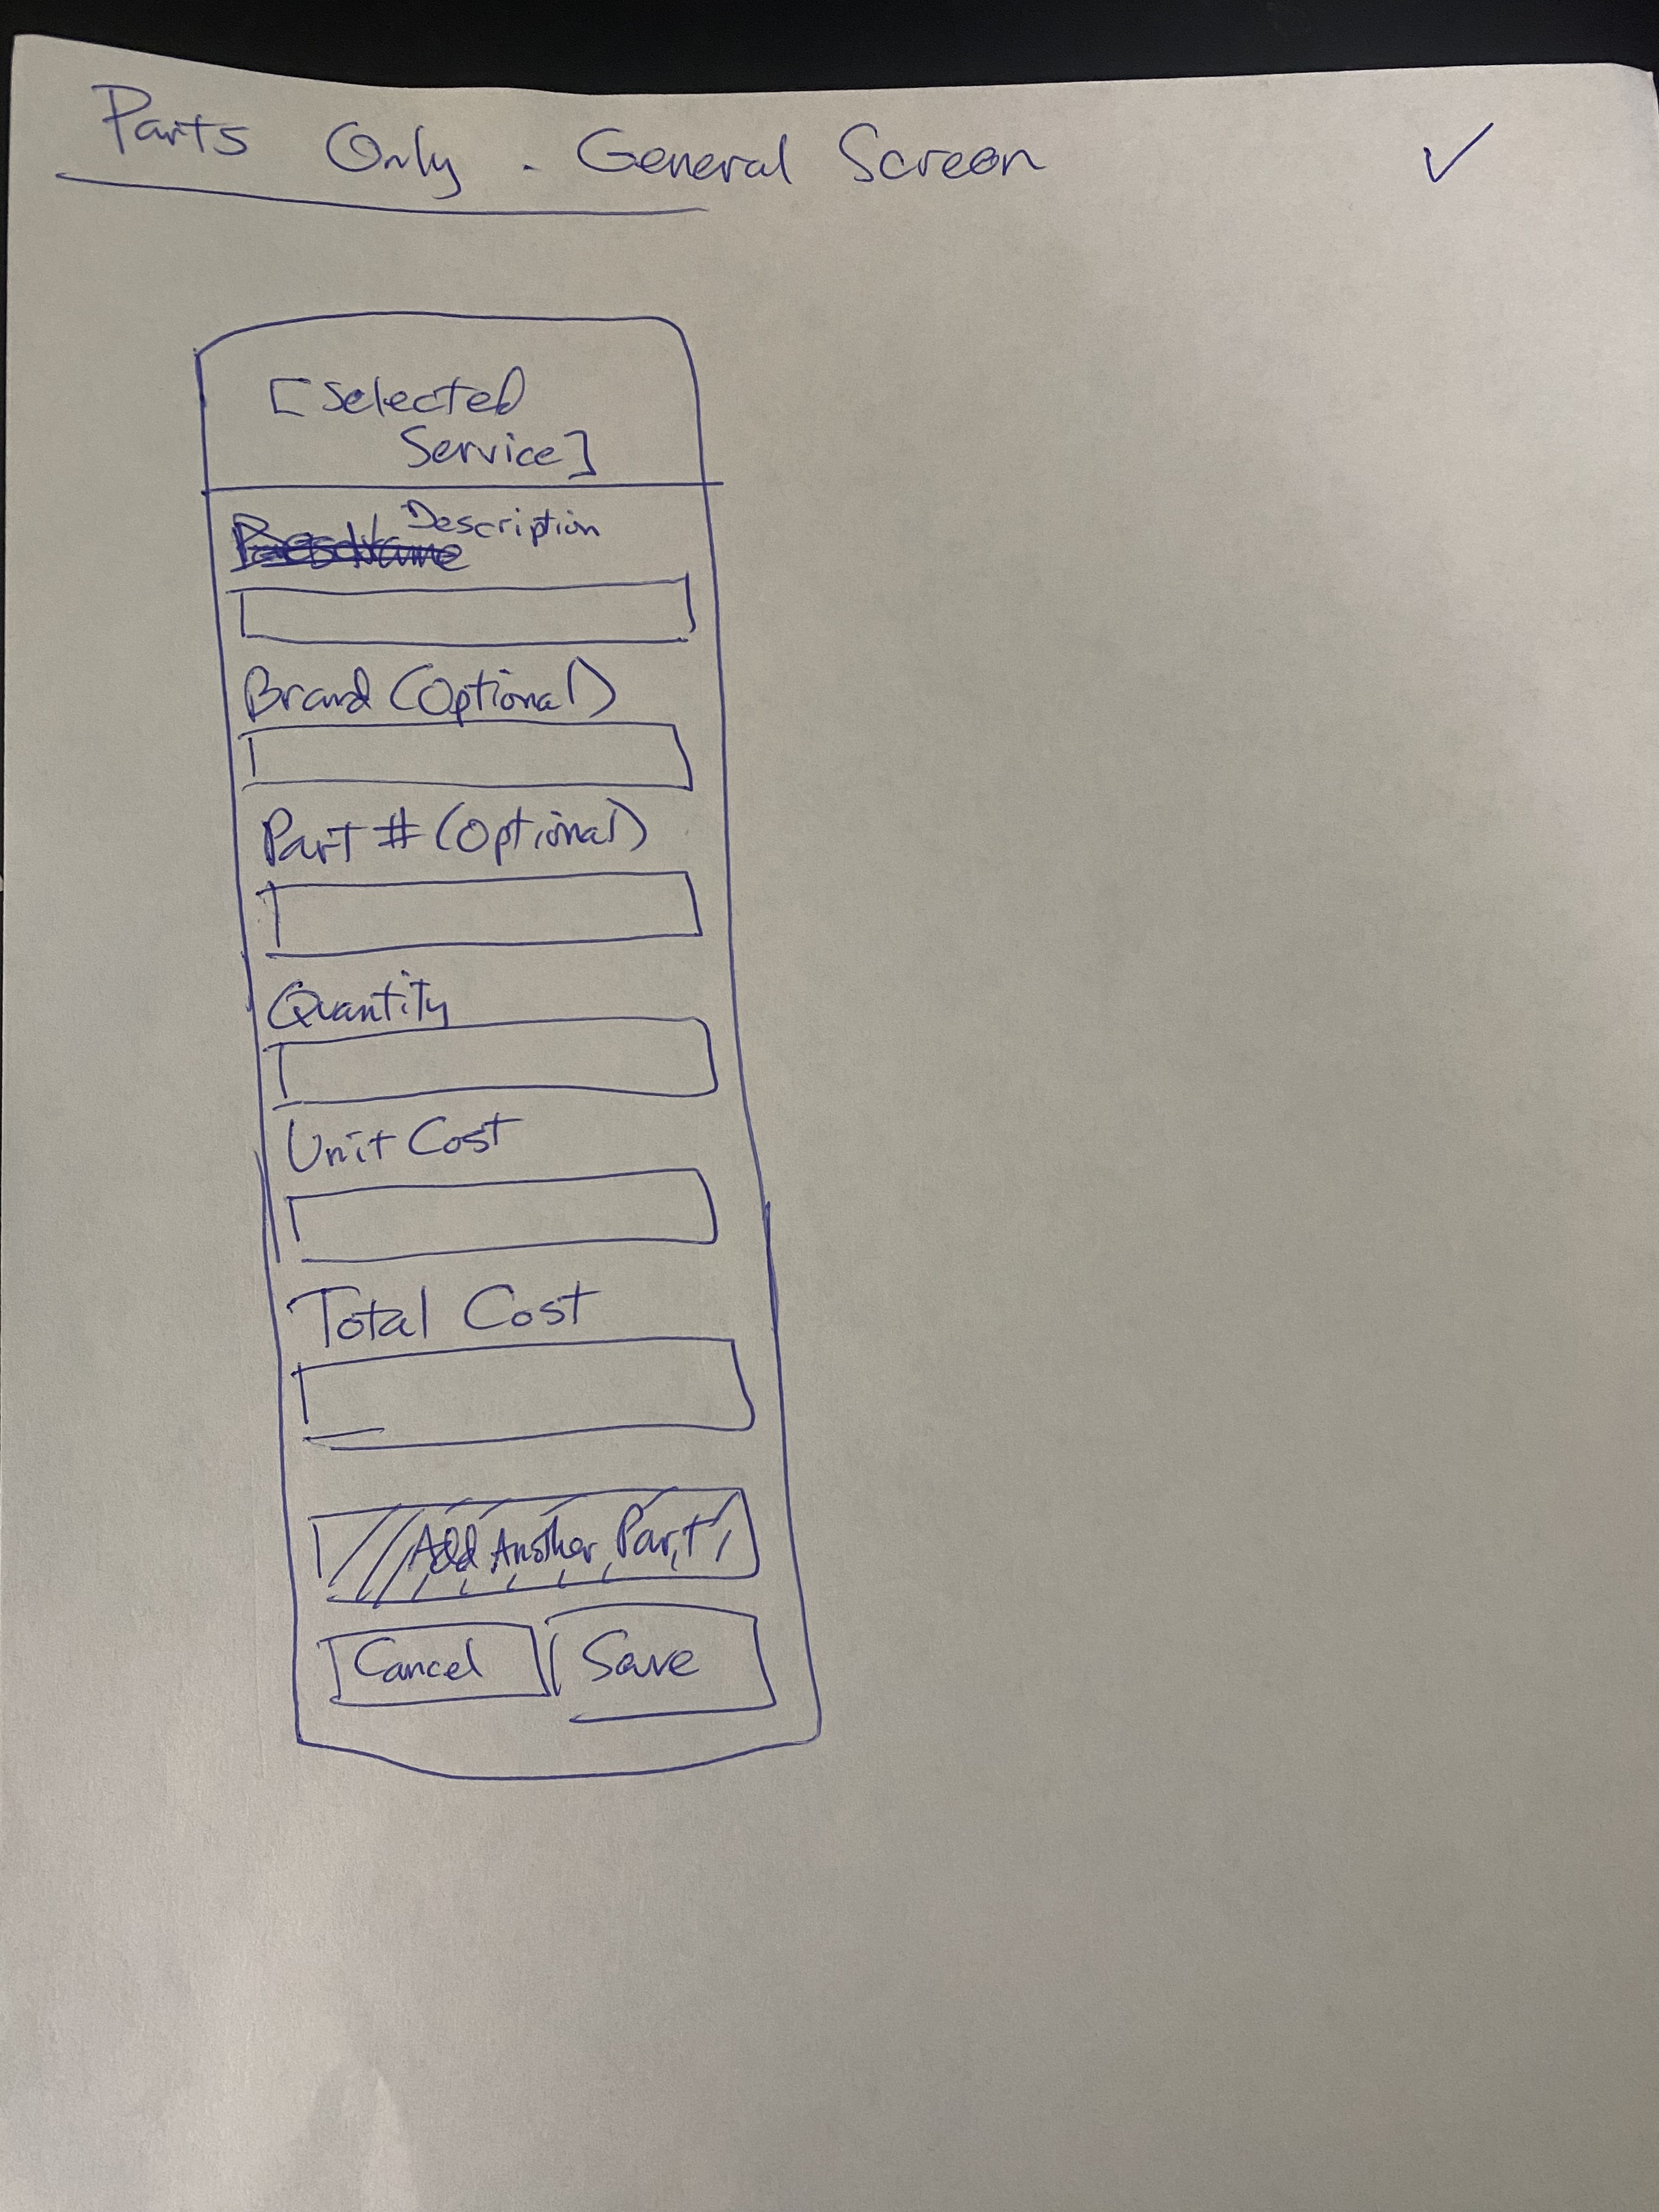 Parts Only - General Screen ✓
[Selected
Service]
Description
Brand (Optional)
Part # (Optional)
Quantity
Unit Cost
Total Cost
Add Another Part
Cancel Save